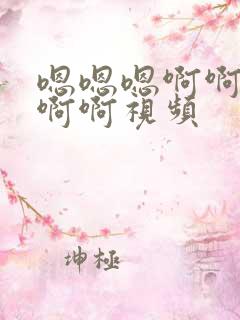 嗯嗯嗯啊啊
啊啊視頻
坤極